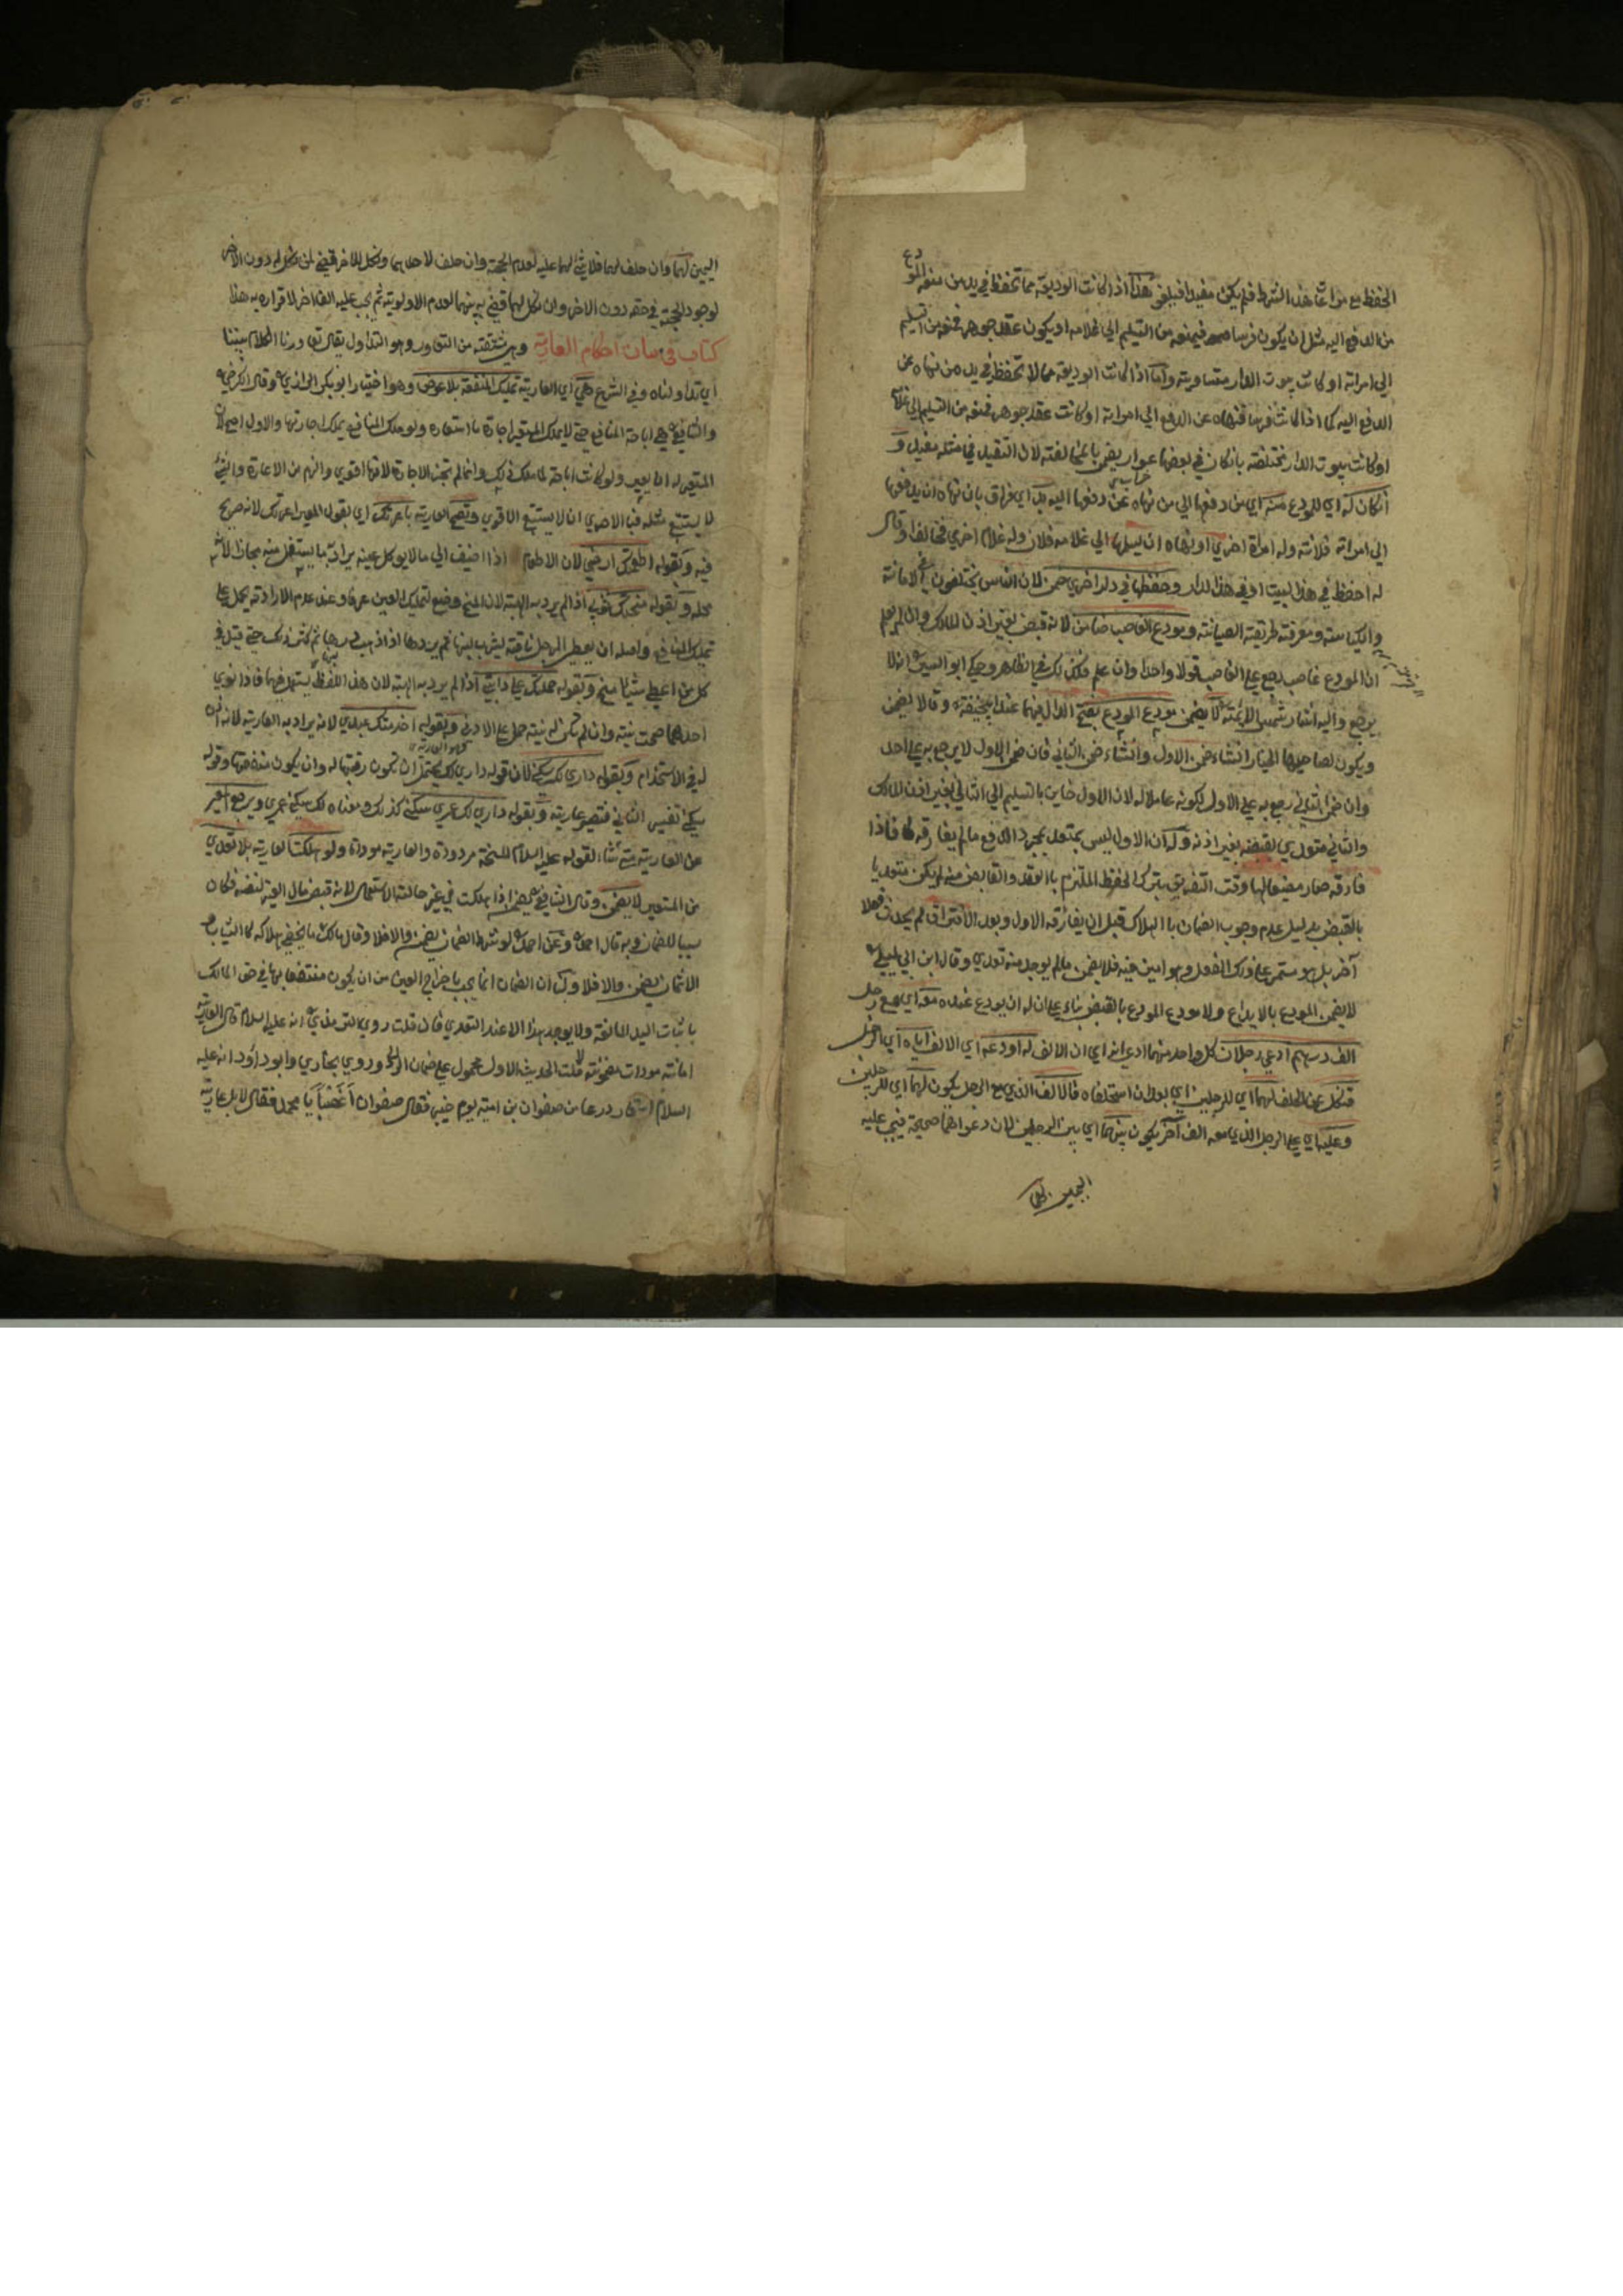 الحفظ مع مراعاة هذا الشرط فلم يكن مفيدا فيلغو هذا اذا كانت الوديعة مما تحفظ في يد من منعه المودع
من الدفع اليه مثل ان يكون فرسا فمنعه من التسليم الي غلامه او يكون عقد جوهر فمنعه من التسليم
الي امراته او كانت بيوت الدار متساوية وأما اذا كانت الوديعة مما لا تحفظ في يد من نهاه عن
الدفع اليه كما اذا كانت فرسا فنهاه عن الدفع الي امراته او كانت عقد جوهر فمنعه من التسليم الي غلامه
او كانت بيوت الدار مختلفة بان كان في بعضها عوار يضمن بالمخالفة لان التقييد في مثله مفيد و
ان كان له اي للمودع منه اي من دفعها الي من نهاه عن دفعها اليه بد اي فراق بان نهاه ان يدفعها
الي امراته فلانة وله امراة اخري او نهاه ان يسلمها الي غلامه فلان وله غلام اخر فخالف او قال
له احفظ في هذا البيت او في هذا الدار وحفظها في دار اخري ضمن لان الناس يختلفون في الامانة
والكياسة ومعرفة طريقة الصيانة ومودع الغاصب ضامن لانه قبض بغير اذن المالك وان لم يعلم
ان المودع غاصب رجع علي الغاصب قولا واحدا وان علم فكذلك في الظاهر وحكي ابو اليسر انه لا
يرجع واليه اشار شمس الائمة لا يضمن مودع المودع بفتح الدال فيهما عند ابي حنيفة وقالا يضمن
ويكون لصاحبها الخيار ان شاء ضمن الاول وان شاء ضمن الثاني فان ضمن الاول لا يرجع به علي احد
وان ضمن الثاني رجع به علي الاول لكونه عاملا له لان الاول خاين بالتسليم الي الثاني بغير اذن المالك
والثاني متعدي بقبضه بغير اذنه وله ان الاول ليس بمتعد بمجرد الدفع ما لم يفارقه فاذا
فارقه صار مضيعا لها وقت التفريق بترك الحفظ الملتزم بالعقد والقابض منه لم يكن متعديا
بالقبض بدليل عدم وجوب الضمان بالهلاك قبل ان يفارقه الاول وبعد الافتراق لم يحدث فعلا
آخر بل هو مستمر علي ذلك الفعل وهو امين فيه فلا يضمن ما لم يوجد منه تعدي وقال ابن ابي ليلي
لا يضمن المودع بالايداع ولا مودع المودع بالقبض بناء علي ان له ان يودع عنده معه اي مع رجل
الف درهم ادعي رجلان كل واحد منهما ادعي انه اي ان الالف له اودعه اي الالف اياه اي الرجل
فنكل عن الحلف لهما اي للرجلين اي بعد ان استحلفاه فالالف الذي مع الرجل يكون لهما اي للرجلين
وعليه اي علي الرجل الذي معه الف آخر يكون بينهما اي بين الرجلين لان دعواهما صحيحة فيجب عليه
اليمين لهما
اليمين لهما وان حلف لهما فلا شئ لهما عليه لعدم الحجة وان حلف لاحدهما ونكل للاخر قضي لمن نكل له دون الاخر
لوجود الحجة في حقه دون الاخر وان نكل لهما قضي به بينهما لعدم الاولوية ثم يجب عليه الف اخر لاقراره به هذا
كتاب في بيان احكام العارية وهي مشتقة من التعاور وهو التداول يقال تعاورنا الكلام بيننا
اي تداولناه وفي الشرع هي اي العارية تمليك المنفعة بلا عوض وهو اختيار ابو بكر الرازي وقال الكرخي
والشافعي هي اباحة المنافع حتي لا يملك المستعير اجارة ما استعاره ولو ملك المنافع يملك اجارتها والاول اصح لان
المستعير له ان يعير ولو كانت اباحة لما ملك ذلك وانما لم تجز الاجارة لانها اقوي والزم من الاعارة والشئ
لا يستتبع مثله فبالاحري ان لا يستتبع الاقوي وتصح العارية باعرتك اي بقول المعير اعرتك لانه صريح
فيه وبقوله اطعمتك ارضي لان الاطعام اذا اضيف الي ما لا يوكل عينه يراد به ما يستغل منه مجازا لانه
محله وبقوله منحتك ثوبي اذا لم يرد به الهبة لان المنح وضع لتمليك العين عرفا وعند عدم الارادة يحمل علي
تمليك المنافع واصله ان يعطي الرجل ناقة ليشرب لبنها ثم يردها اذا ذهب درها ثم كثر ذلك حتي قيل في
كل من اعطي شيئا منح وبقوله حملتك علي دابتي اذا لم يرد به الهبة لان هذا اللفظ يستعمل فيهما فاذا نوي
احدهما صحت نيته وان لم تكن له نية حمل علي الادني وبقوله اخدمتك عبدي لانه يراد به العارية لانه اذن
له في الاستخدام وبقوله داري لك سكني لان قوله داري لك يحتمل ان تكون رقبتها له وان يكون منفعتها وقوله
سكني تفسير الثاني فتصير عارية وبقوله داري لك عمري سكني كذلك ومعناه لك سكني عمري ويرجع المعير
عن العارية متي شاء لقوله عليه السلام المنحة مردودة والعارية موداة ولو هلكت العارية بلا تعدي
من المستعير لا يضمن وقال الشافعي يضمن اذا هلكت في غير حالة الاستعمال لانه قبض مال الغير لنفسه فكان
سببا للضمان وبه قال احمد وعن احمد لو شرط الضمان يضمن والا فلا وقال مالك ما يخفي هلاكه كالثياب و
الاثمان يضمن والا فلا ولنا ان الضمان انما يجب باخراج العين من ان يكون منتفعا بها في حق المالك
باثبات اليد المانعة ولا يوجد هذا الا عند التعدي فان قلت روي الترمذي انه عليه السلام قال العارية
امانة موداة مضمونة قلت الحديث الاول محمول علي ضمان الرد وروي بخاري وابو داود انه عليه
السلام استعار درعا من صفوان بن امية يوم حنين فقال صفوان أغصبا يا محمد فقال لا بل عارية